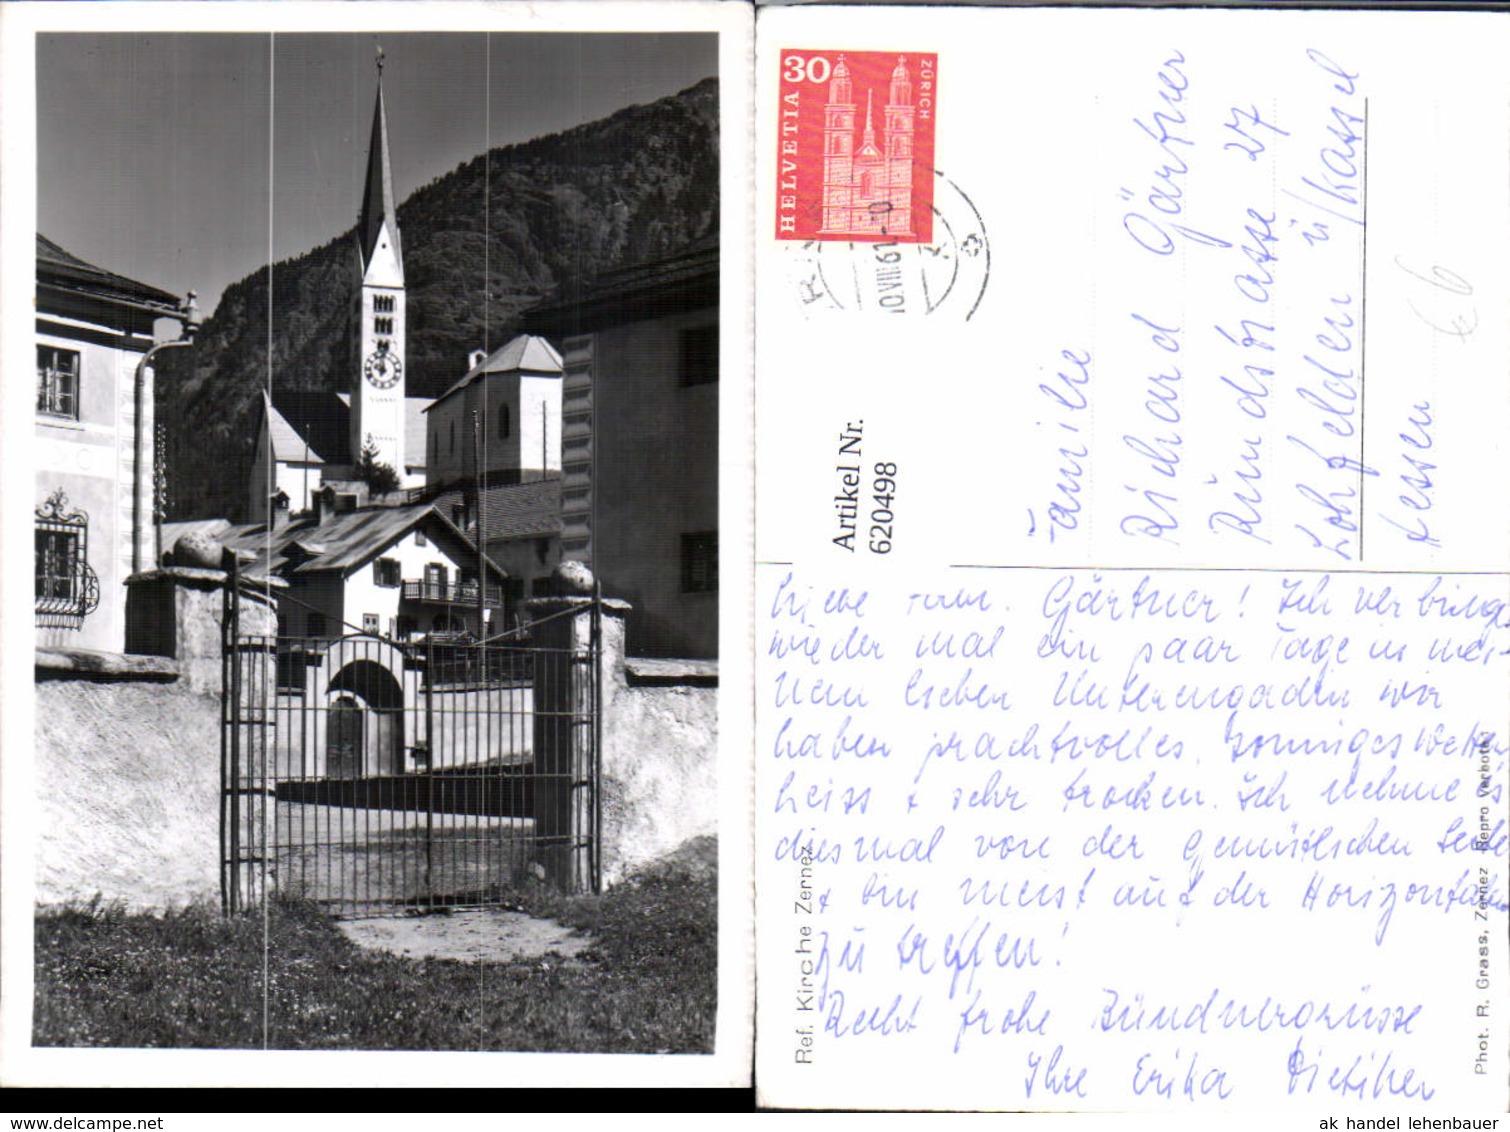 30
HELVETIA
ZÜRICH
0.VIII.61.-0
Artikel Nr.
620498
Familie
Richard Gärtner
Rundstrasse 27
Lohfelden ü/Kassel
Hessen
€6
Liebe Fam. Gärtner! Ich verbringe
wieder mal ein paar Tage in mei-
nem lieben Unterengadin wir
haben prachtvolles, sonniges Wetter
heiss + sehr trocken. Ich nehme es
diesmal von der gemütlichen Seite
+ bin meist auf der Horizontalen
zu treffen!
Recht frohe Bündnergrüsse
Ihre Erika Dietiker
Ref. Kirche Zernez
Phot. R. Grass, Zernez - Repro verboten
www.delcampe.net
ak handel lehenbauer